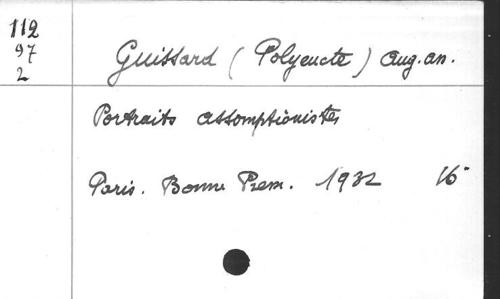 112
97
2
Guissard (Polyeucte) Aug. as.
Portraits assomptionistes
Paris. Bonne Presse. 1932 16°